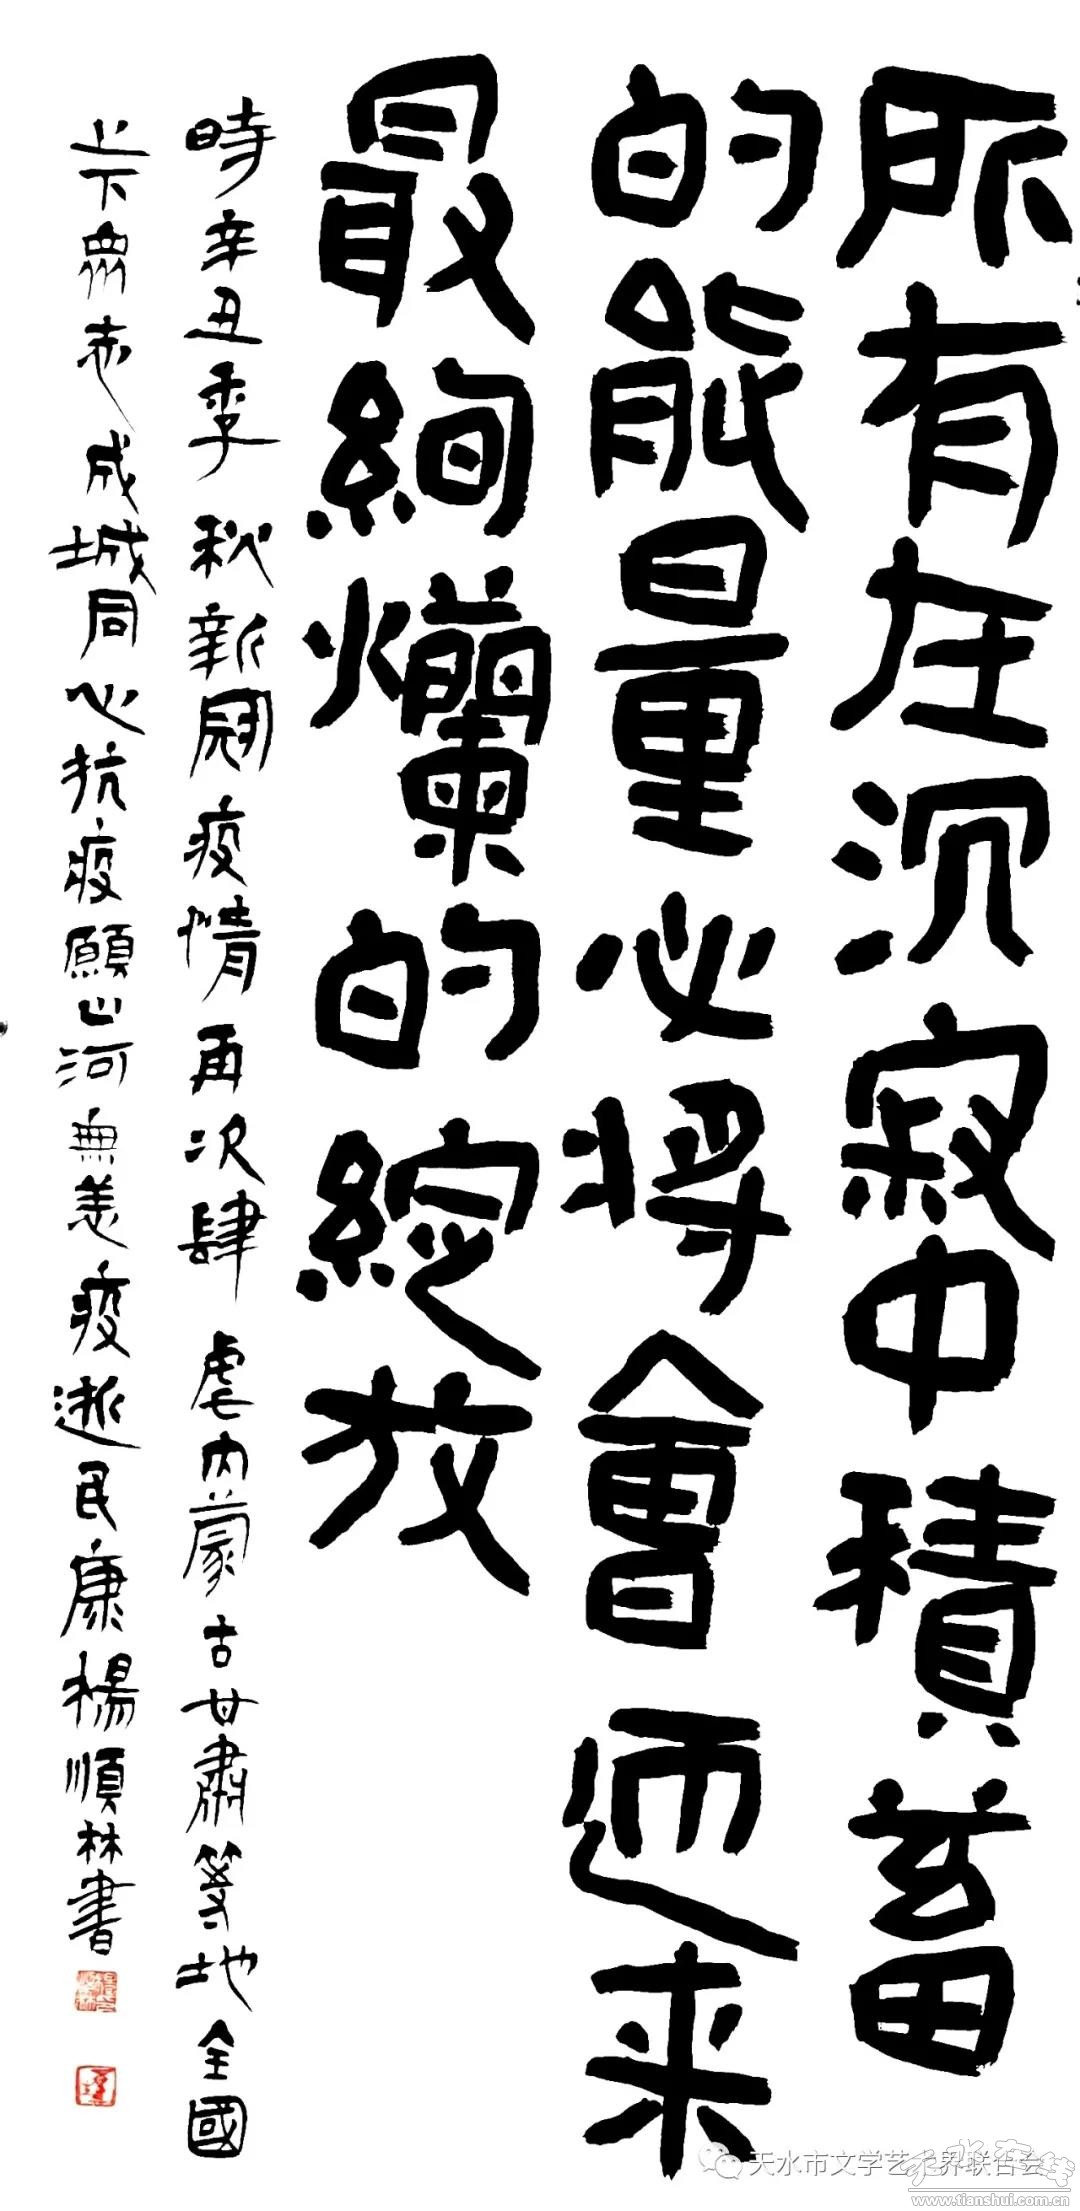 所有在沉寂中積蓄
的能量必將會迎来
最絢爛的綻放
時辛丑季秋新冠疫情再次肆虐内蒙古甘肅等地全國
上下眾志成城同心抗疫願山河無恙疫逝民康楊順林書
天水市文学艺术界联合会
天水在线
www.tianshui.com.cn